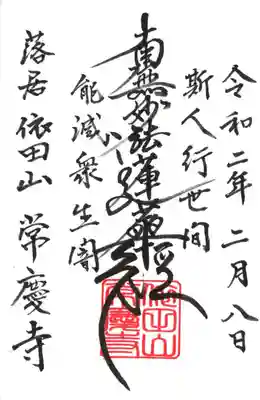 令和二年 二月八日
斯人行世間
南無妙法蓮華経
能滅衆生闇
落居 依田山 常慶寺